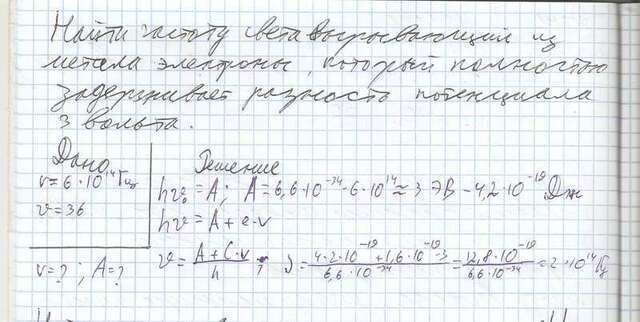 Найти частоту света вырывающий из
метала электроны, который полностью
задерживает разность потенциала
3 вольта.
Дано Решение
ν=6·10¹⁴Гц hν₀=A; A=6,6·10⁻³⁴·6·10¹⁴≈3 ЭВ-4,2·10⁻¹⁹Дж
v=3б hν=A+e·v
ν=?; A=? ν=A+C·v/h ? ν=4·2·10⁻¹⁹+1,6·10⁻¹⁹·3/6,6·10⁻³⁴=12,8·10⁻¹⁹/6,6·10⁻³⁴=2·10¹⁴Гц